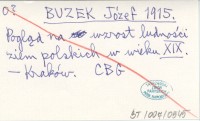 03
BUZEK Józef 1915.
Pogląd na wzrost ludności
ziem polskich w wieku XIX.
— Kraków. CBG
BT/004/0545